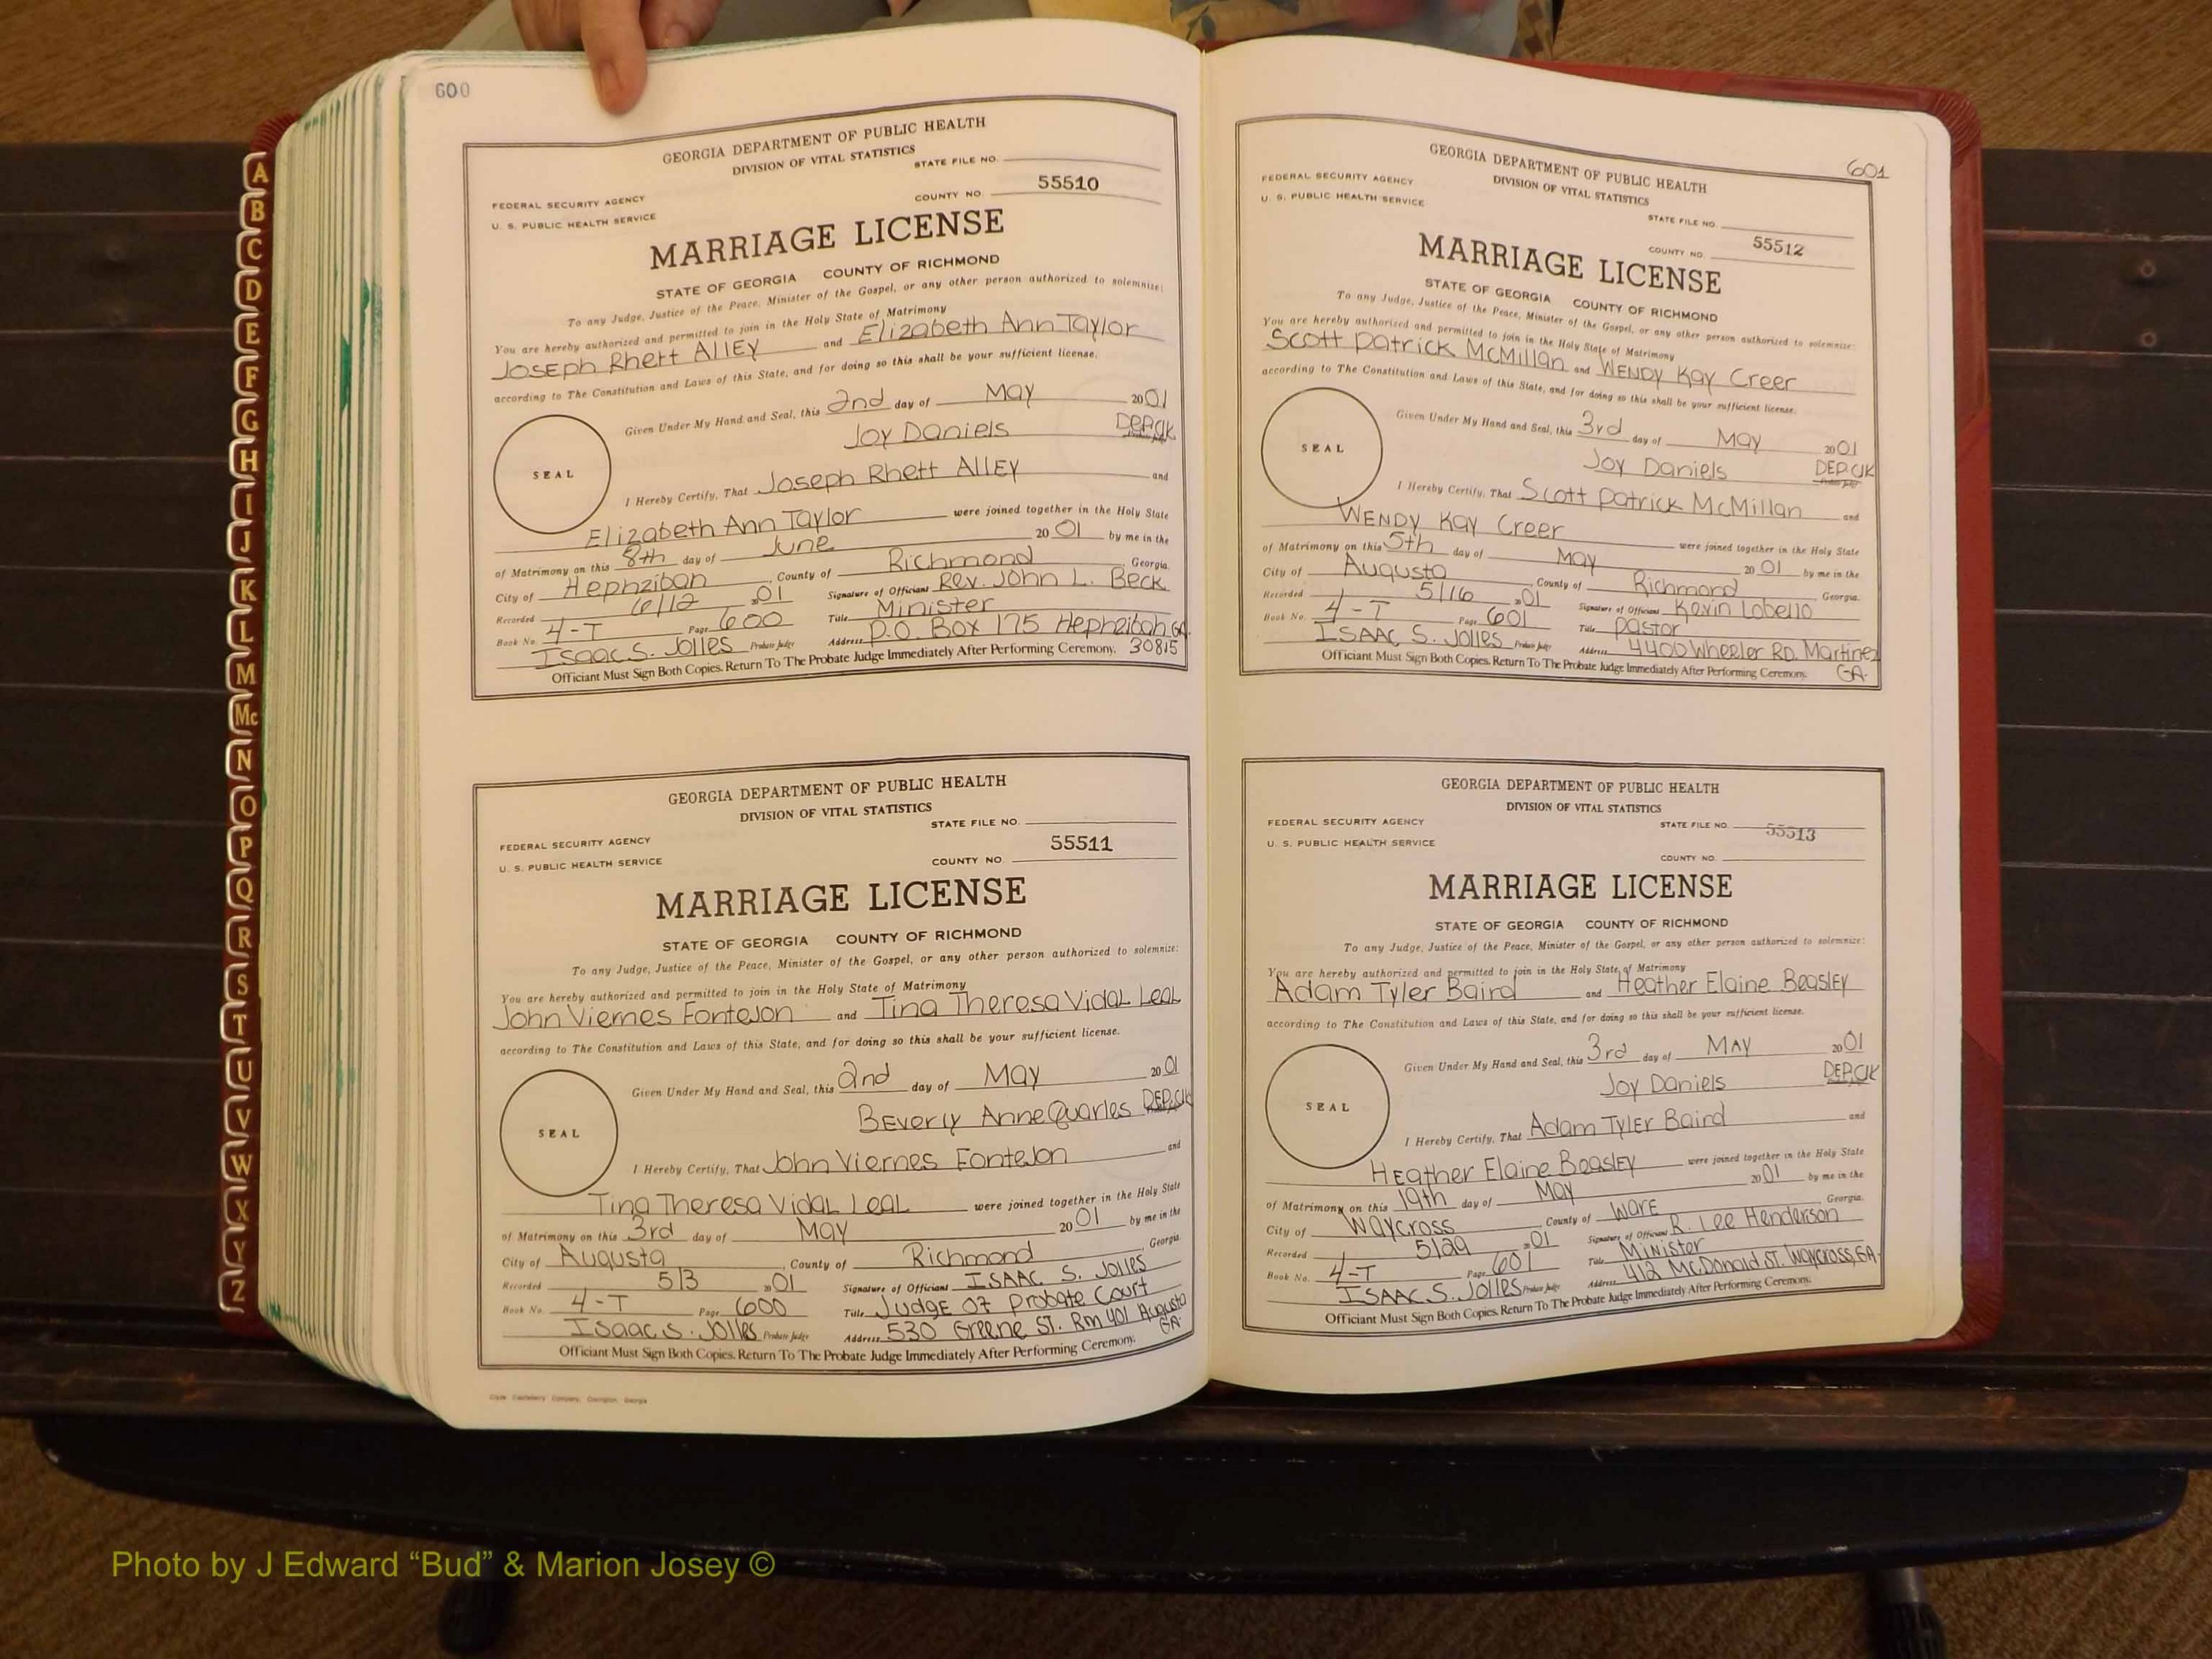 A
B
C
D
E
F
G
H
I
J
K
L
M
Mc
N
O
P
Q
R
S
T
U
V
W
X
Y
Z
600
GEORGIA DEPARTMENT OF PUBLIC HEALTH
DIVISION OF VITAL STATISTICS
STATE FILE NO.
FEDERAL SECURITY AGENCY
COUNTY NO. 55510
U. S. PUBLIC HEALTH SERVICE
MARRIAGE LICENSE
STATE OF GEORGIA COUNTY OF RICHMOND
To any Judge, Justice of the Peace, Minister of the Gospel, or any other person authorized to solemnize:
You are hereby authorized and permitted to join in the Holy State of Matrimony
Joseph Rhett Alley and Elizabeth Ann Taylor
according to The Constitution and Laws of this State, and for doing so this shall be your sufficient license.
Given Under My Hand and Seal, this 2nd day of May 2001
Joy Daniels DEP.Clk
SEAL
I Hereby Certify, That Joseph Rhett Alley and
Elizabeth Ann Taylor were joined together in the Holy State
of Matrimony on this 8th day of June 2001 by me in the
City of Hephzibah, County of Richmond Georgia.
Recorded 6/12 2001 Signature of Officiant Rev. John L. Beck
Book No. 4-T Page 600 Title Minister
Isaac S. Jolles Probate Judge Address P.O. Box 175 Hephzibah, GA.
30815
Officiant Must Sign Both Copies. Return To The Probate Judge Immediately After Performing Ceremony.
GEORGIA DEPARTMENT OF PUBLIC HEALTH
DIVISION OF VITAL STATISTICS
STATE FILE NO.
FEDERAL SECURITY AGENCY
COUNTY NO. 55511
U. S. PUBLIC HEALTH SERVICE
MARRIAGE LICENSE
STATE OF GEORGIA COUNTY OF RICHMOND
To any Judge, Justice of the Peace, Minister of the Gospel, or any other person authorized to solemnize:
You are hereby authorized and permitted to join in the Holy State of Matrimony
John Viernes Fontejon and Tina Theresa Vidal Leal
according to The Constitution and Laws of this State, and for doing so this shall be your sufficient license.
Given Under My Hand and Seal, this 2nd day of May 2001
Beverly Anne Quarles DEP.Clk
SEAL
I Hereby Certify, That John Viernes Fontejon and
Tina Theresa Vidal Leal were joined together in the Holy State
of Matrimony on this 3rd day of May 2001 by me in the
City of Augusta, County of Richmond Georgia.
Recorded 5/3 2001 Signature of Officiant Isaac S. Jolles
Book No. 4-T Page 600 Title Judge of Probate Court
Isaac S. Jolles Probate Judge Address 530 Greene St. Rm 401 Augusta
GA.
Officiant Must Sign Both Copies. Return To The Probate Judge Immediately After Performing Ceremony.
Clyde Castleberry Company, Covington, Georgia
601
GEORGIA DEPARTMENT OF PUBLIC HEALTH
DIVISION OF VITAL STATISTICS
FEDERAL SECURITY AGENCY
STATE FILE NO.
U. S. PUBLIC HEALTH SERVICE
COUNTY NO. 55512
MARRIAGE LICENSE
STATE OF GEORGIA COUNTY OF RICHMOND
To any Judge, Justice of the Peace, Minister of the Gospel, or any other person authorized to solemnize:
You are hereby authorized and permitted to join in the Holy State of Matrimony
Scott Patrick McMillan and Wendy Kay Creer
according to The Constitution and Laws of this State, and for doing so this shall be your sufficient license.
Given Under My Hand and Seal, this 3rd day of May 2001
Joy Daniels DEP.Clk
SEAL
I Hereby Certify, That Scott Patrick McMillan and
Wendy Kay Creer were joined together in the Holy State
of Matrimony on this 5th day of May 2001 by me in the
City of Augusta, County of Richmond Georgia.
Recorded 5/16 2001 Signature of Officiant Kevin Lobello
Book No. 4-T Page 601 Title Pastor
Isaac S. Jolles Probate Judge Address 4400 Wheeler RD. Martinez
GA.
Officiant Must Sign Both Copies. Return To The Probate Judge Immediately After Performing Ceremony.
GEORGIA DEPARTMENT OF PUBLIC HEALTH
DIVISION OF VITAL STATISTICS
FEDERAL SECURITY AGENCY
STATE FILE NO. 55513
U. S. PUBLIC HEALTH SERVICE
COUNTY NO.
MARRIAGE LICENSE
STATE OF GEORGIA COUNTY OF RICHMOND
To any Judge, Justice of the Peace, Minister of the Gospel, or any other person authorized to solemnize:
You are hereby authorized and permitted to join in the Holy State of Matrimony
Adam Tyler Baird and Heather Elaine Beasley
according to The Constitution and Laws of this State, and for doing so this shall be your sufficient license.
Given Under My Hand and Seal, this 3rd day of May 2001
Joy Daniels DEP.Clk
SEAL
I Hereby Certify, That Adam Tyler Baird and
Heather Elaine Beasley were joined together in the Holy State
of Matrimony on this 19th day of May 2001 by me in the
City of Waycross, County of Ware Georgia.
Recorded 5/29 2001 Signature of Officiant R. Lee Henderson
Book No. 4-T Page 601 Title Minister
Isaac S. Jolles Probate Judge Address 412 McDonald St. Waycross, GA.
Officiant Must Sign Both Copies. Return To The Probate Judge Immediately After Performing Ceremony.
Photo by J Edward “Bud” & Marion Josey ©